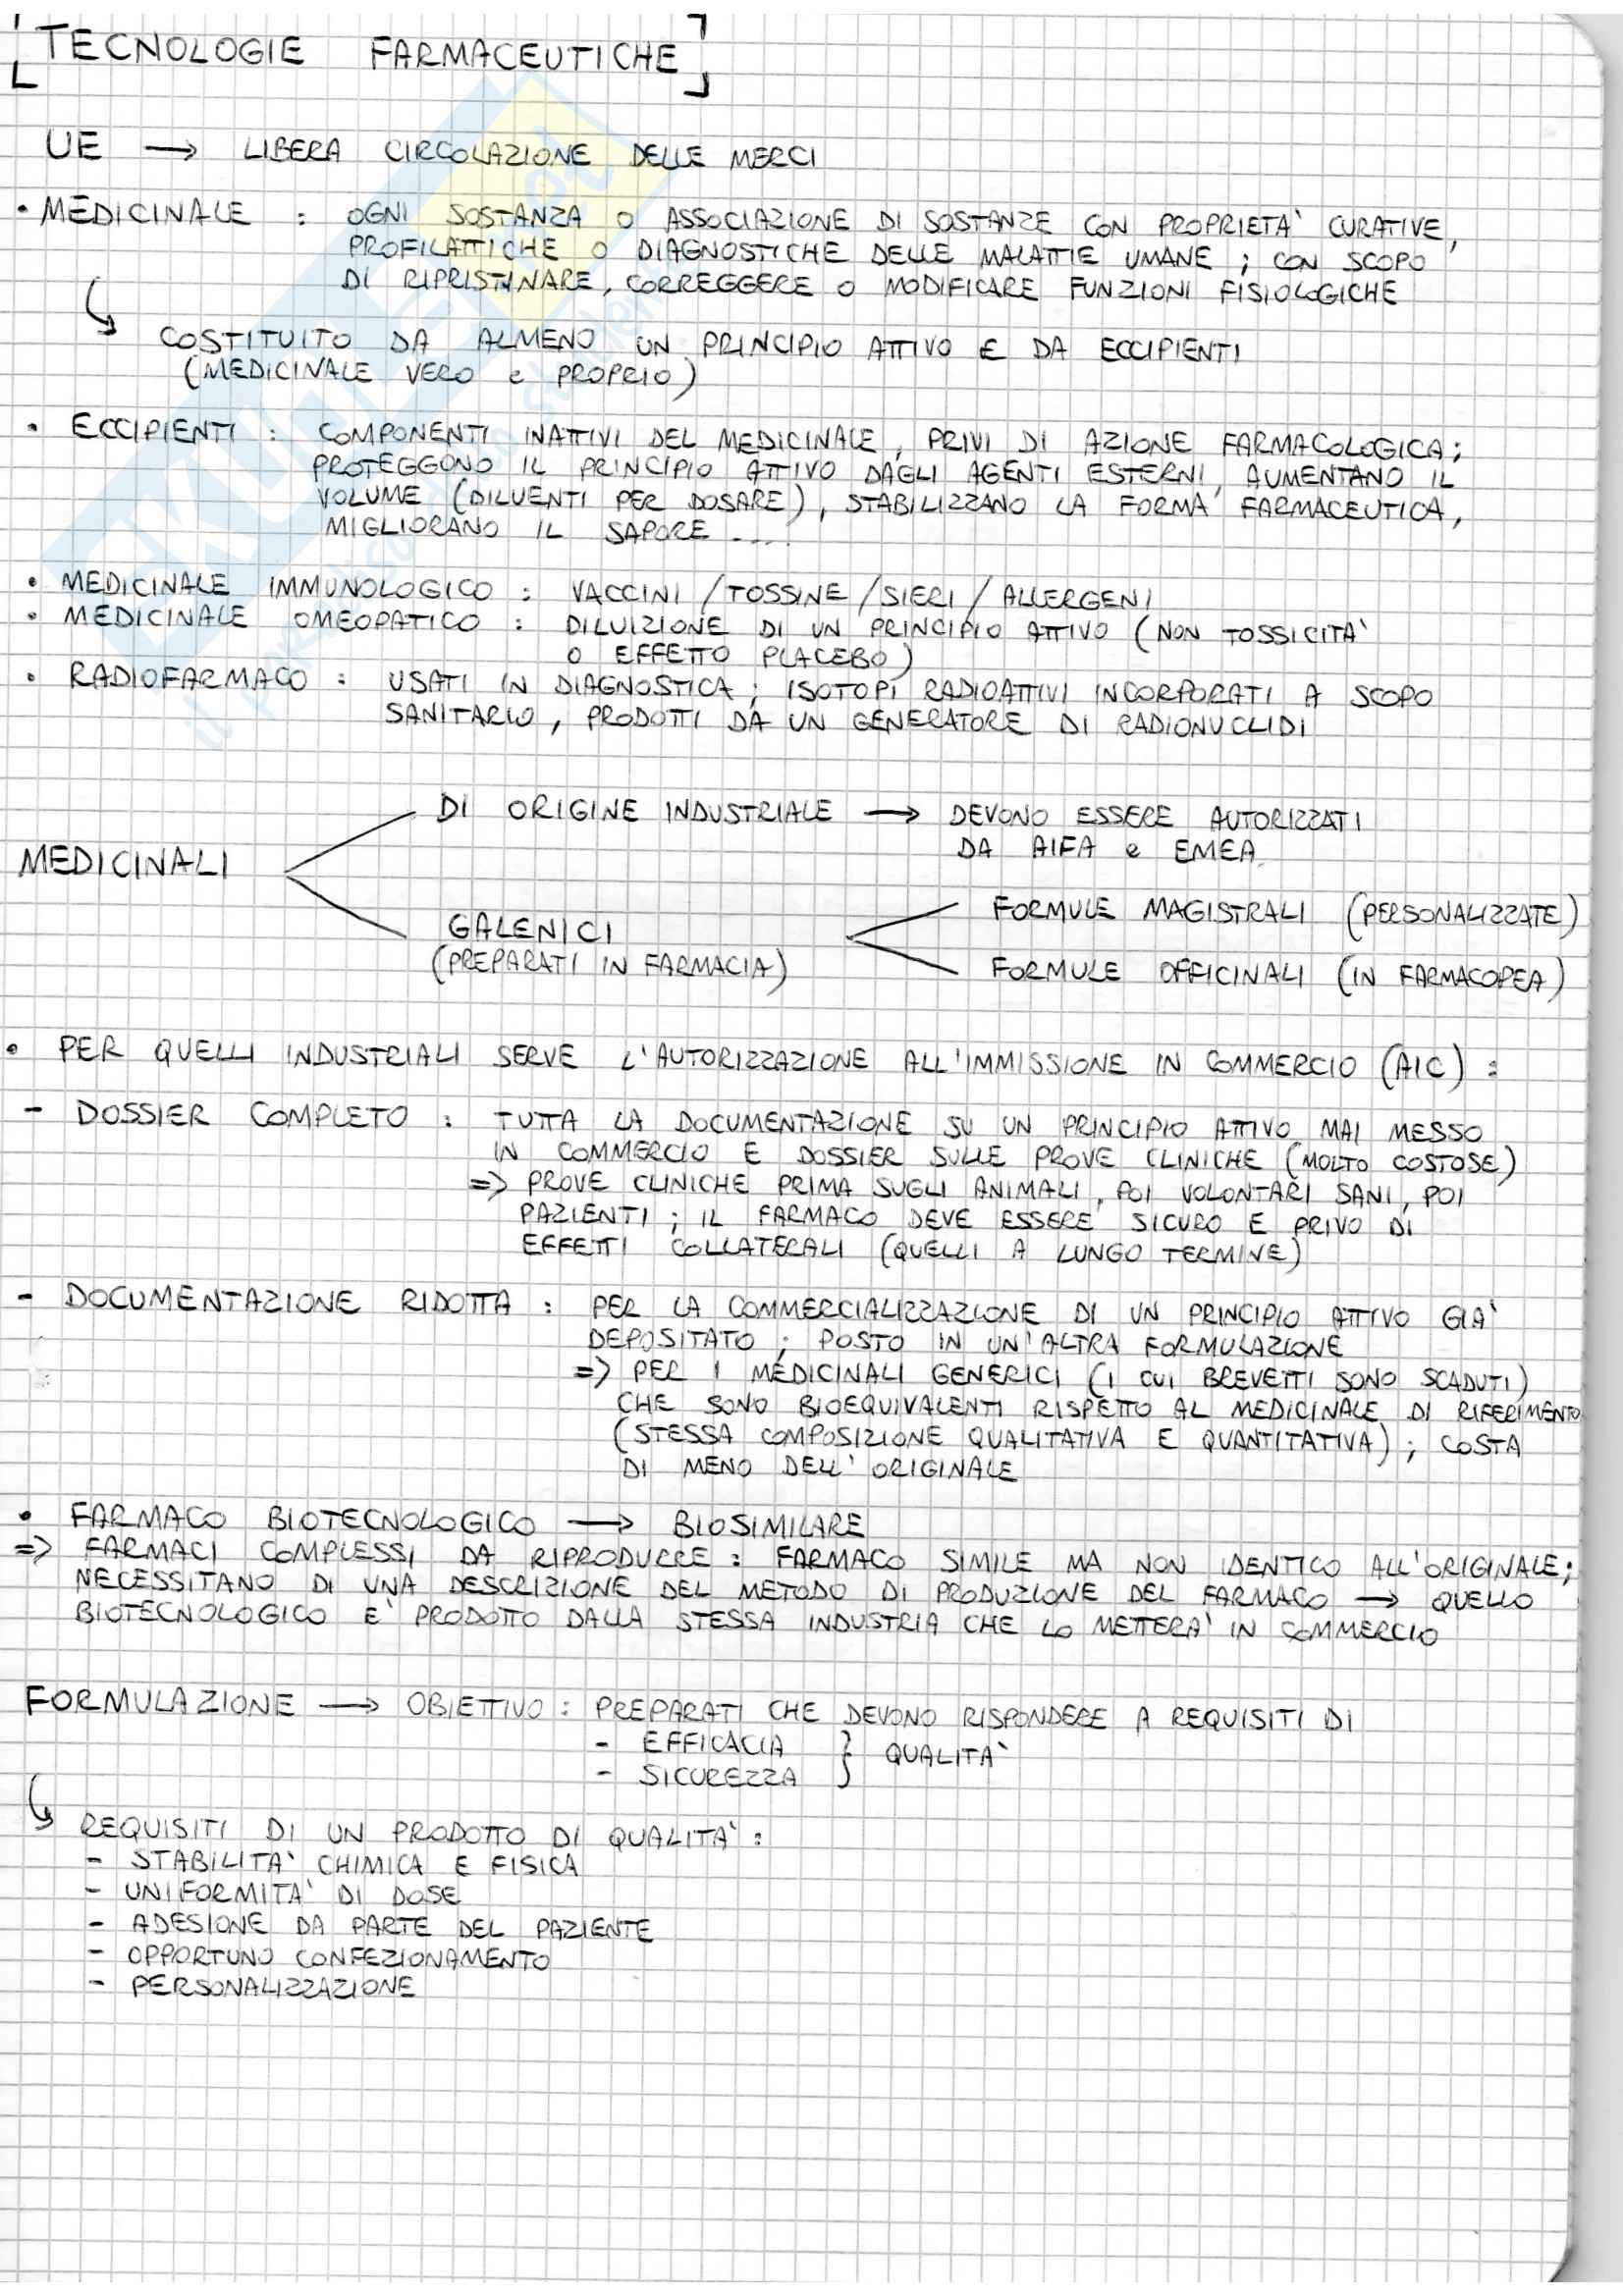 TECNOLOGIE FARMACEUTICHE
UE → LIBERA CIRCOLAZIONE DELLE MERCI
• MEDICINALE : OGNI SOSTANZA O ASSOCIAZIONE DI SOSTANZE CON PROPRIETA' CURATIVE,
PROFILATTICHE O DIAGNOSTICHE DELLE MALATTIE UMANE ; CON SCOPO
DI RIPRISTINARE, CORREGGERE O MODIFICARE FUNZIONI FISIOLOGICHE
↳ COSTITUITO DA ALMENO UN PRINCIPIO ATTIVO E DA ECCIPIENTI
(MEDICINALE VERO e PROPRIO)
• ECCIPIENTI : COMPONENTI INATTIVI DEL MEDICINALE, PRIVI DI AZIONE FARMACOLOGICA;
PROTEGGONO IL PRINCIPIO ATTIVO DAGLI AGENTI ESTERNI, AUMENTANO IL
VOLUME (DILUENTI PER DOSARE), STABILIZZANO LA FORMA FARMACEUTICA,
MIGLIORANO IL SAPORE ....
• MEDICINALE IMMUNOLOGICO : VACCINI / TOSSINE / SIERI / ALLERGENI
• MEDICINALE OMEOPATICO : DILUIZIONE DI UN PRINCIPIO ATTIVO (NON TOSSICITA'
O EFFETTO PLACEBO)
• RADIOFARMACO : USATI IN DIAGNOSTICA ; ISOTOPI RADIOATTIVI INCORPORATI A SCOPO
SANITARIO, PRODOTTI DA UN GENERATORE DI RADIONUCLIDI
DI ORIGINE INDUSTRIALE → DEVONO ESSERE AUTORIZZATI
DA AIFA e EMEA
MEDICINALI
FORMULE MAGISTRALI (PERSONALIZZATE)
GALENICI
(PREPARATI IN FARMACIA)
FORMULE OFFICINALI (IN FARMACOPEA)
• PER QUELLI INDUSTRIALI SERVE L'AUTORIZZAZIONE ALL'IMMISSIONE IN COMMERCIO (AIC) :
- DOSSIER COMPLETO : TUTTA LA DOCUMENTAZIONE SU UN PRINCIPIO ATTIVO MAI MESSO
IN COMMERCIO E DOSSIER SULLE PROVE CLINICHE (MOLTO COSTOSE)
=> PROVE CLINICHE PRIMA SUGLI ANIMALI, POI VOLONTARI SANI, POI
PAZIENTI ; IL FARMACO DEVE ESSERE SICURO E PRIVO DI
EFFETTI COLLATERALI (QUELLI A LUNGO TERMINE)
- DOCUMENTAZIONE RIDOTTA : PER LA COMMERCIALIZZAZIONE DI UN PRINCIPIO ATTIVO GIA'
DEPOSITATO ; POSTO IN UN'ALTRA FORMULAZIONE
=> PER I MEDICINALI GENERICI (I CUI BREVETTI SONO SCADUTI)
CHE SONO BIOEQUIVALENTI RISPETTO AL MEDICINALE DI RIFERIMENTO
(STESSA COMPOSIZIONE QUALITATIVA E QUANTITATIVA) ; COSTA
DI MENO DELL'ORIGINALE
• FARMACO BIOTECNOLOGICO → BIOSIMILARE
=> FARMACI COMPLESSI DA RIPRODURRE : FARMACO SIMILE MA NON IDENTICO ALL'ORIGINALE;
NECESSITANO DI UNA DESCRIZIONE DEL METODO DI PRODUZIONE DEL FARMACO → QUELLO
BIOTECNOLOGICO E' PRODOTTO DALLA STESSA INDUSTRIA CHE LO METTERA' IN COMMERCIO
FORMULAZIONE → OBIETTIVO : PREPARATI CHE DEVONO RISPONDERE A REQUISITI DI
- EFFICACIA } QUALITA'
- SICUREZZA
↳ REQUISITI DI UN PRODOTTO DI QUALITA' :
- STABILITA' CHIMICA E FISICA
- UNIFORMITA' DI DOSE
- ADESIONE DA PARTE DEL PAZIENTE
- OPPORTUNO CONFEZIONAMENTO
- PERSONALIZZAZIONE